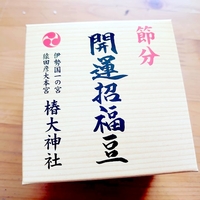 節分
開運招福豆
伊勢国一の宮
猿田彦大本宮
椿大神社